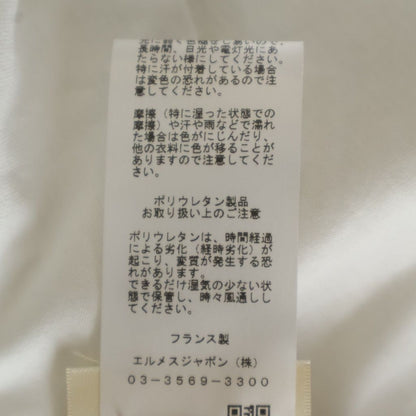 光に弱く色褪せし易いので、
長時間、日光や電灯光にあ
たらない様にしてください。
特に汗が付着している場合
は変色の恐れがあるので注
意してください。
摩擦（特に湿った状態での
摩擦）や汗や雨などで濡れ
た場合は色がにじんだり、
他の衣料に色が移ることが
ありますので注意してくだ
さい。
ポリウレタン製品
お取り扱い上のご注意
ポリウレタンは、時間経過
による劣化（経時劣化）が
起こり、変質が発生する恐
れがあります。
できるだけ湿気の少ない状
態で保管し、時々風通しし
てください。
フランス製
エルメスジャポン（株）
03-3569-3300